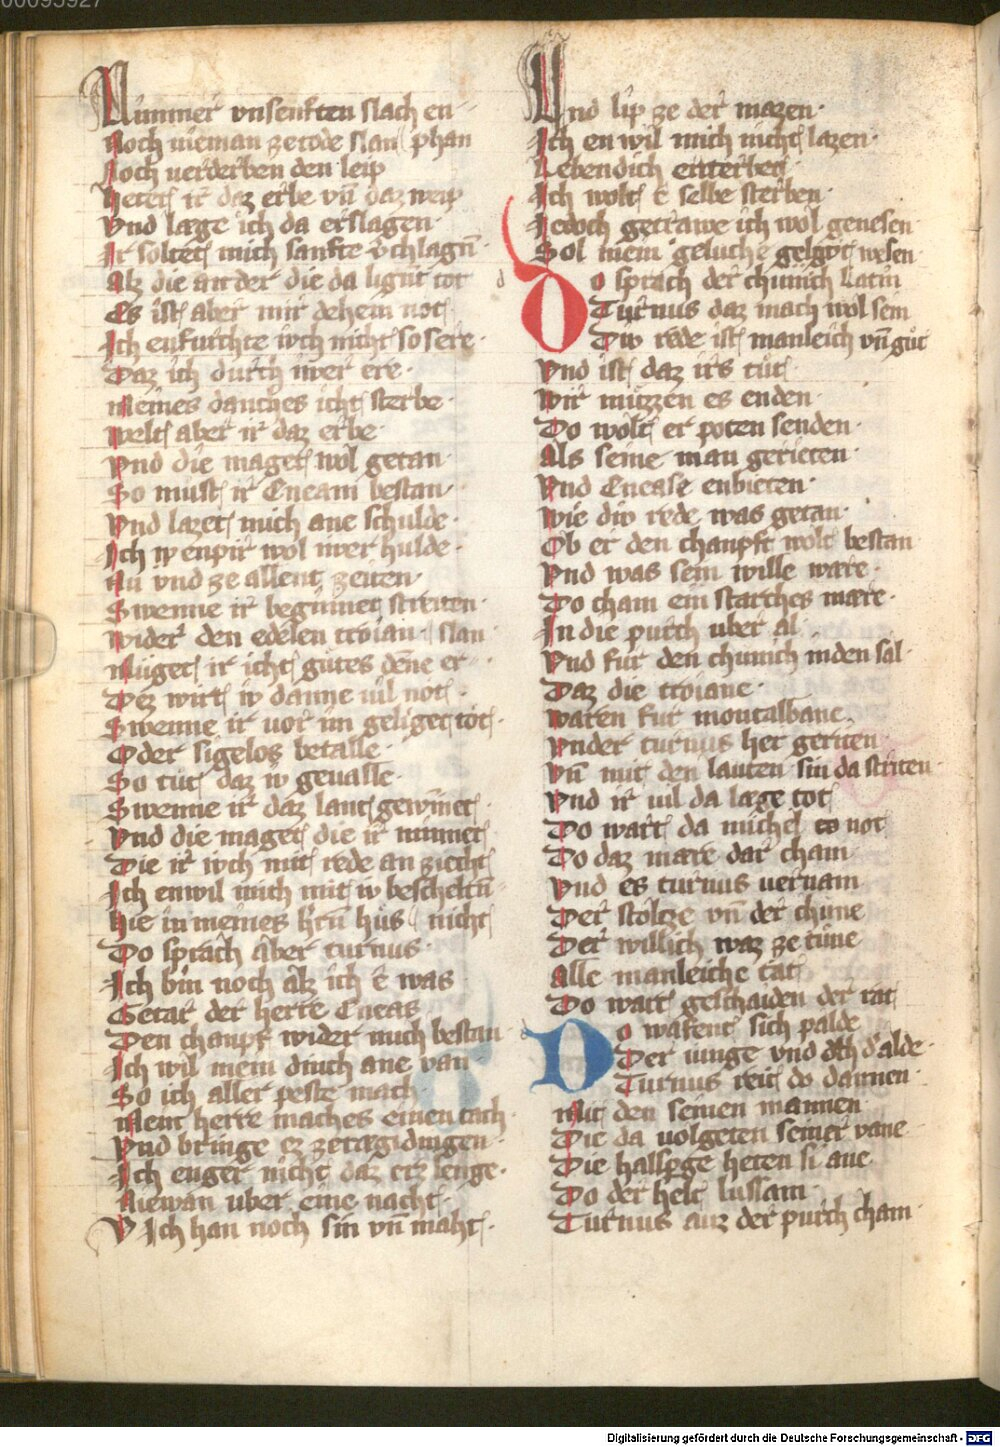 00095927
Nimmer vnsenften slach en
Noch nieman ze tode slan phan
Noch verderben den leip
Hetet ir daz erbe vn̄ daz weip
Vnd læge ich da erslagen
Ir soltet mich sanfte v̄chlagn̄
Alz die ander die da lignt tot
Es ist aber mir dehein not
Ich enfurchte iwch nicht so sere
Daz ich durch iwer ere
Meines danches icht sterbe
Welt aber ir daz erbe
Vnd die maget wol getan
So must ir Eneam bestan
Vnd lazet mich ane schulde
Ich w enpir wol iwer hulde
Nu vnd ze allent zeiten
Swenne ir beginnet streiten
Wider den edelen troian slan
Muget ir icht gutes dēne er
Dez wirt iv danne vil not
Swenne ir vor im geliget tot
Oder sigelos betalle
So tut daz iv gevalle
Swenne ir daz lant gewinnet
Vnd die maget die ir minnet
Die ir iwch mit rede an ziecht
Ich enwil mich mit iv beschelten̄
Hie in meines hern̄ hus nicht
Do sprach aber turnus
Ich bin noch alz ich e was
Getar der herre Eneas
Den champf wider mich bestan
Ich wil mein druch ane van
So ich aller peste mach
Mein herre maches einen tach
Vnd bringe ez ze tægidingen
Ich enger nicht daz erz lenge
Niewan uber eine nacht
V Ich han noch sin vn̄ maht
Vnd lip ze der mazen
Ich en wil mich nicht lazen
Lebendich enterben
Ich wolt e selbe sterben
Iedoch getrawe ich wol genesen
Sol mein geluche gelgyt wesen
d
Do sprach der chunich Latin
Turnus daz mach wol sein
Diw rede ist manleich vn̄ gut
Vnd ist daz irs tut
Wir muzzen es enden
Do wolt er poten senden
Als seine man gerieten
Vnd Enease enbieten
Wie diw rede was getan
Ob er den champft wolt bestan
Vnd was sein wille ware
Do cham ein starches mære
In die purch uber al
Vnd fur den chunich inden sal
Daz die troiane
Waren fur montalbane
Vnder turnus her geriten
Vn̄ mit den lauten sin da striten
Vnd ir vil da læge tot
Do wart da michel not
Do daz mære dar cham
Vnd es turnus vernam
Der stoltze vn̄ der chune
Der willich waz ze tune
Alle manleiche tat
Do wart geschaiden der rat
Do wafent sich palde
Der iunge vnd der alde
Turnus reit do dannen
Mit den seinen mannen
Die da volgeten seiner vane
Die halsperge heten si ane
Do der helt lussam
Turnus auz der purch cham
Digitalisierung gefördert durch die Deutsche Forschungsgemeinschaft - DFG